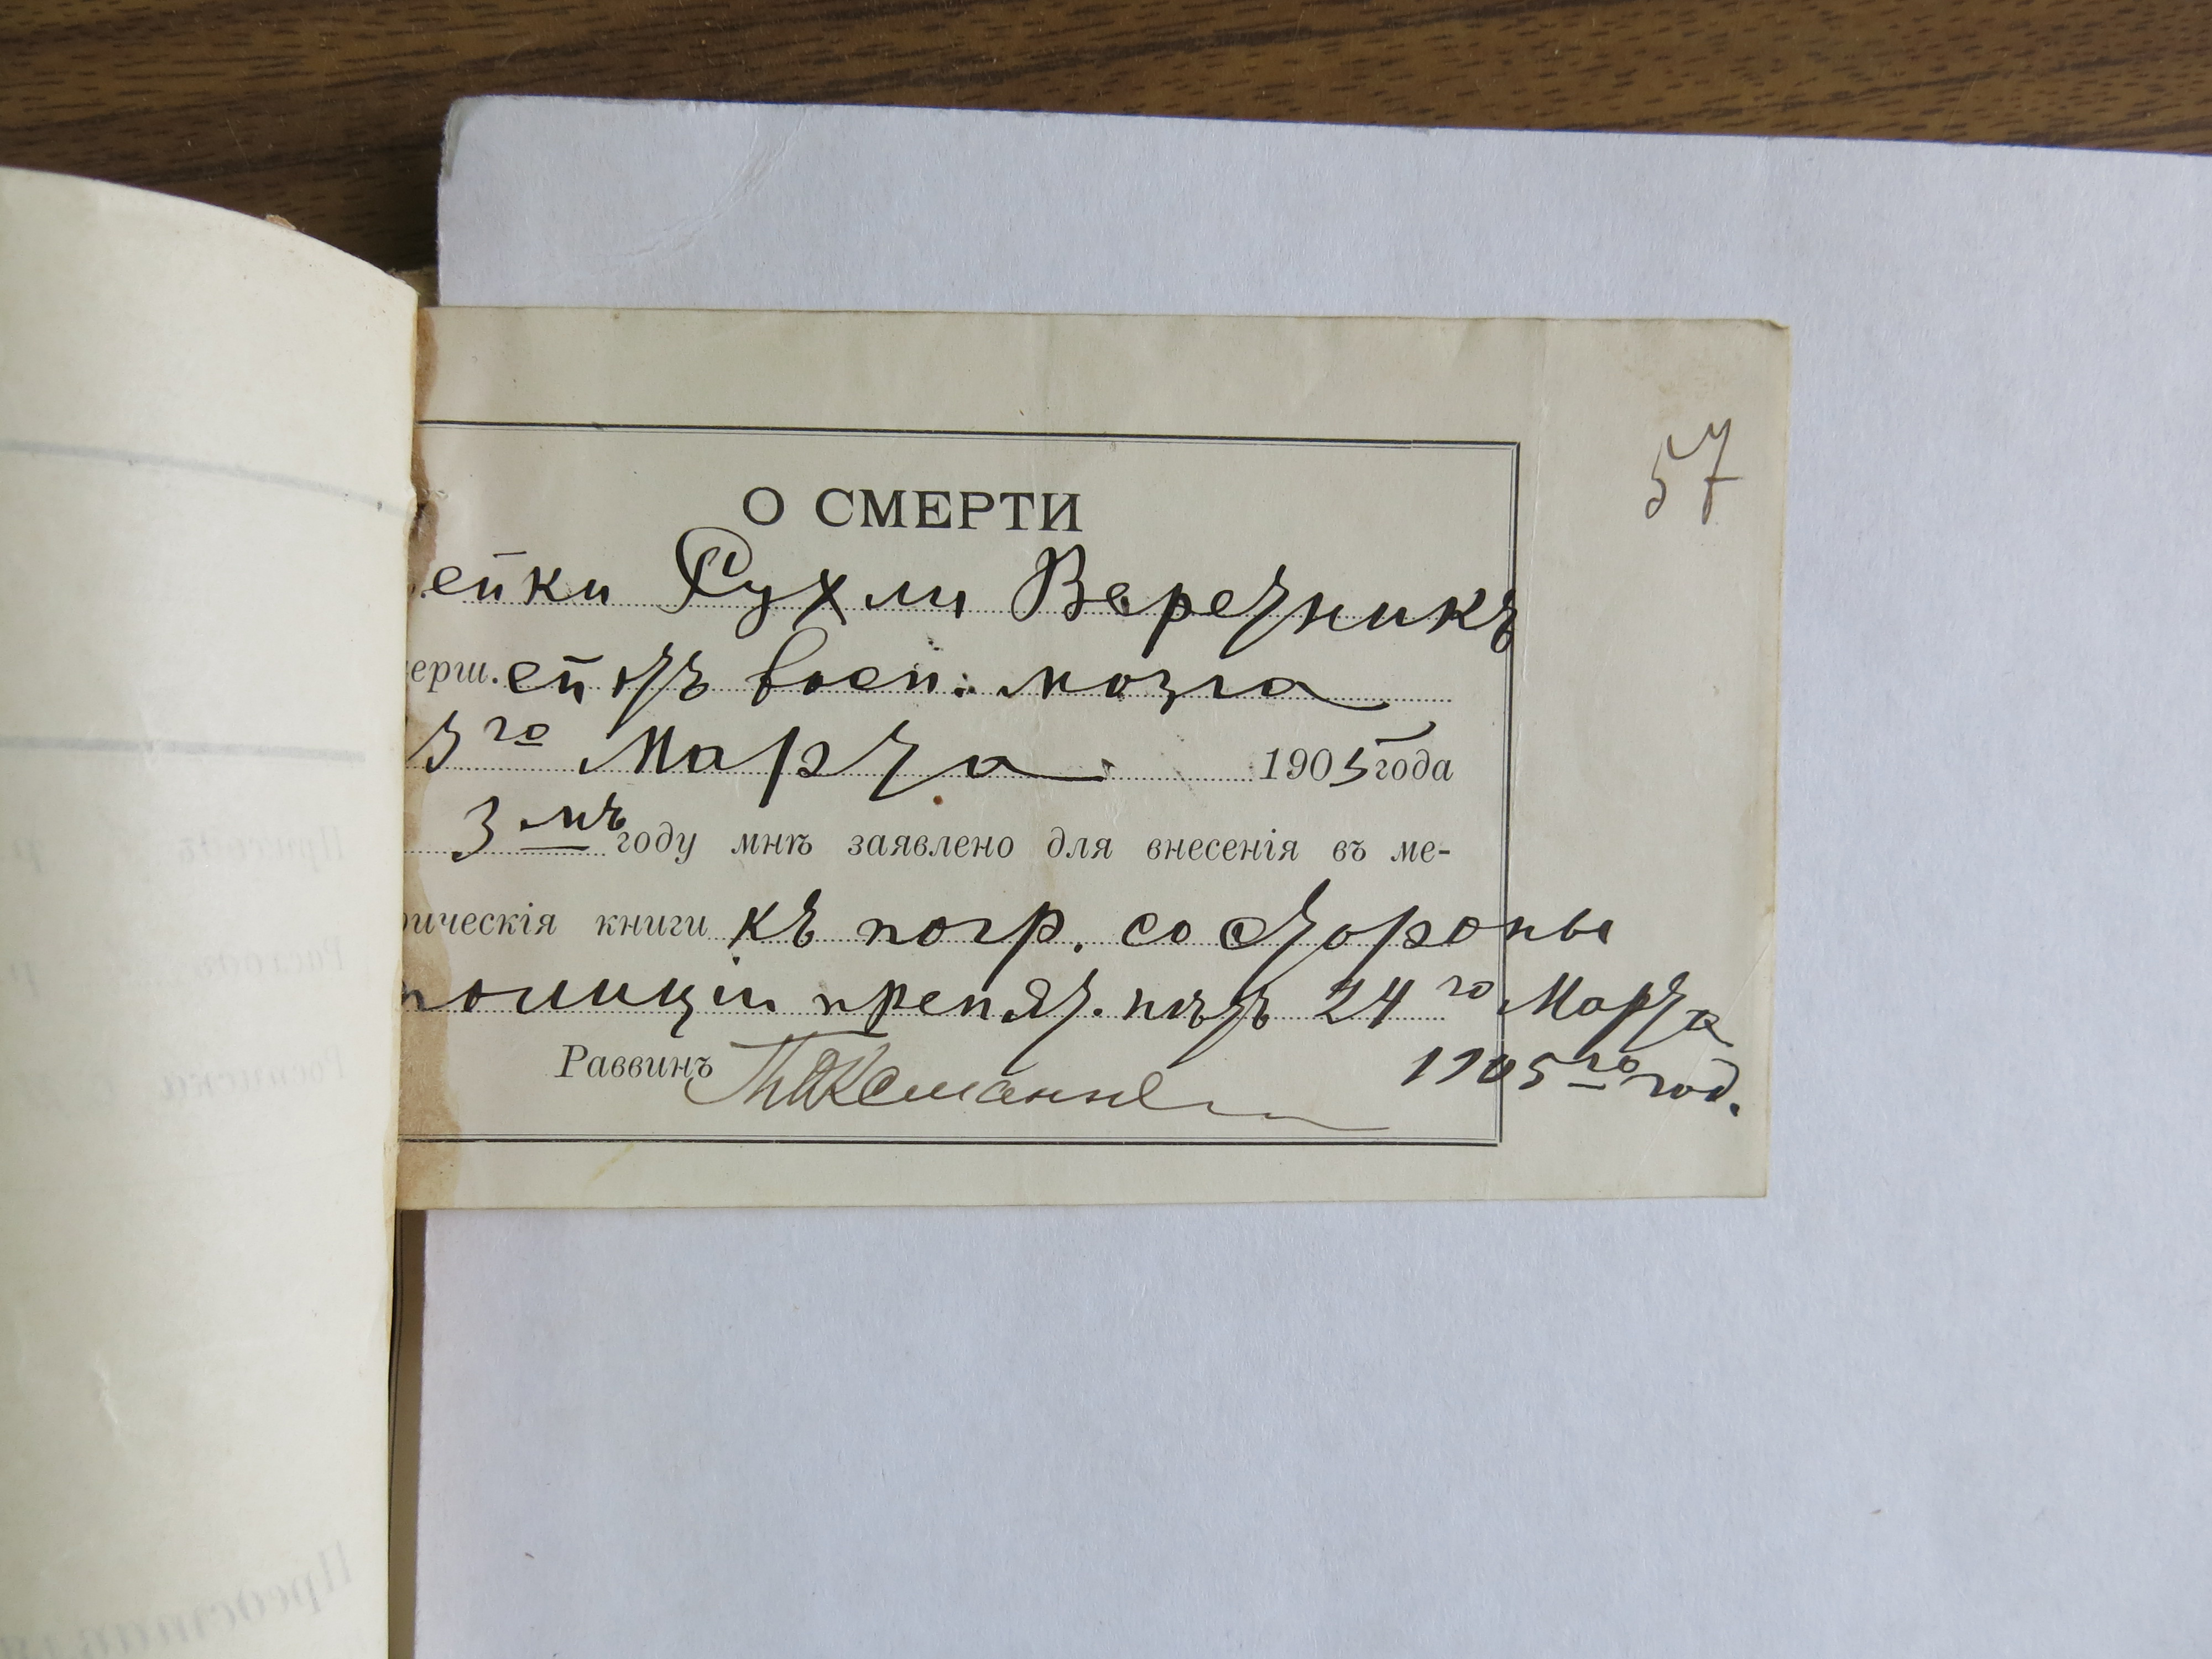 57
О СМЕРТИ
ейки Рухли Верезникъ
ерш.ей отъ восп. мозга
3го Марта 1905 года
3мъ году мнѣ заявлено для внесенія въ ме-
рическія книги къ погр. со стороны
полиціи препят. нѣтъ 24го Марта
1905го год.
Раввинъ